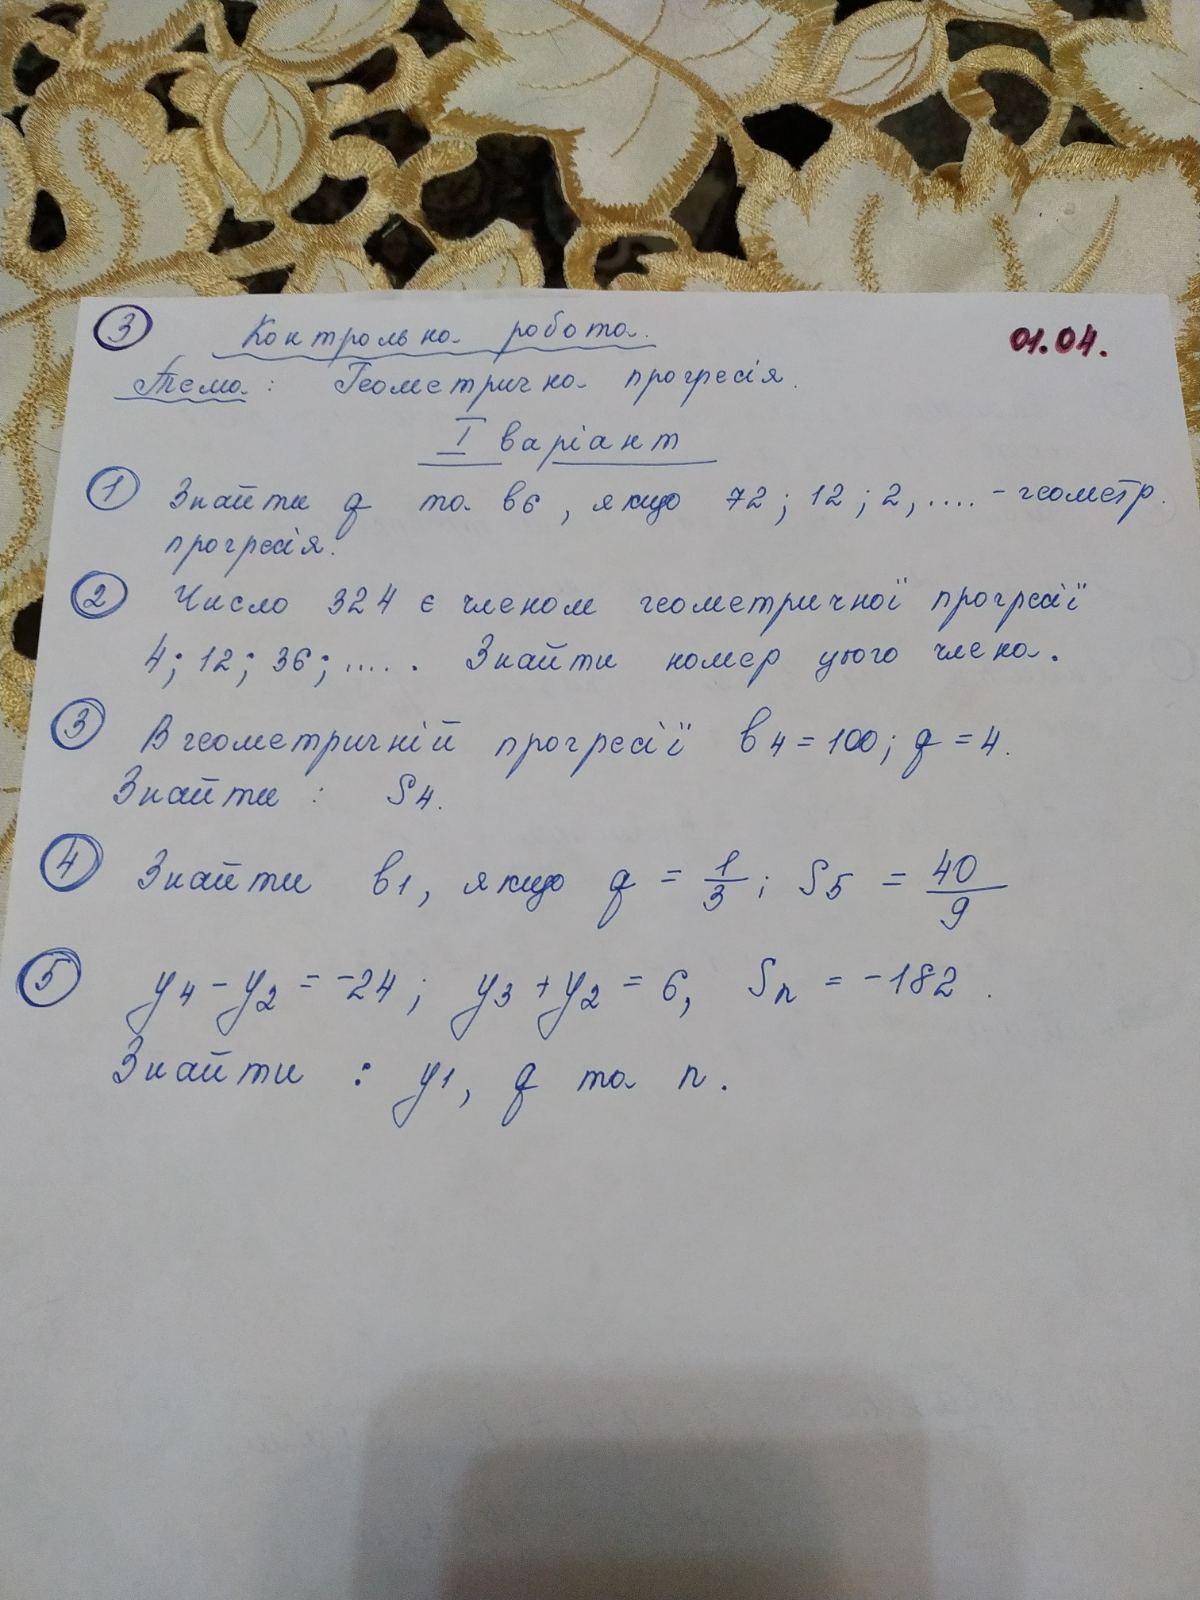 3 Контрольна робота. 01.04.
Тема: Геометрична прогресія.
I варіант
1 Знайти q та b6, якщо 72; 12; 2, .... - геометр.
прогресія.
2 Число 324 є членом геометричної прогресії
4; 12; 36; ..... Знайти номер цього члена.
3 В геометричній прогресії b4 = 100; q = 4.
Знайти: S4.
4 Знайти b1, якщо q = 1/3; S5 = 40/9
5 y4 - y2 = -24; y3 + y2 = 6, Sn = -182.
Знайти: y1, q та n.